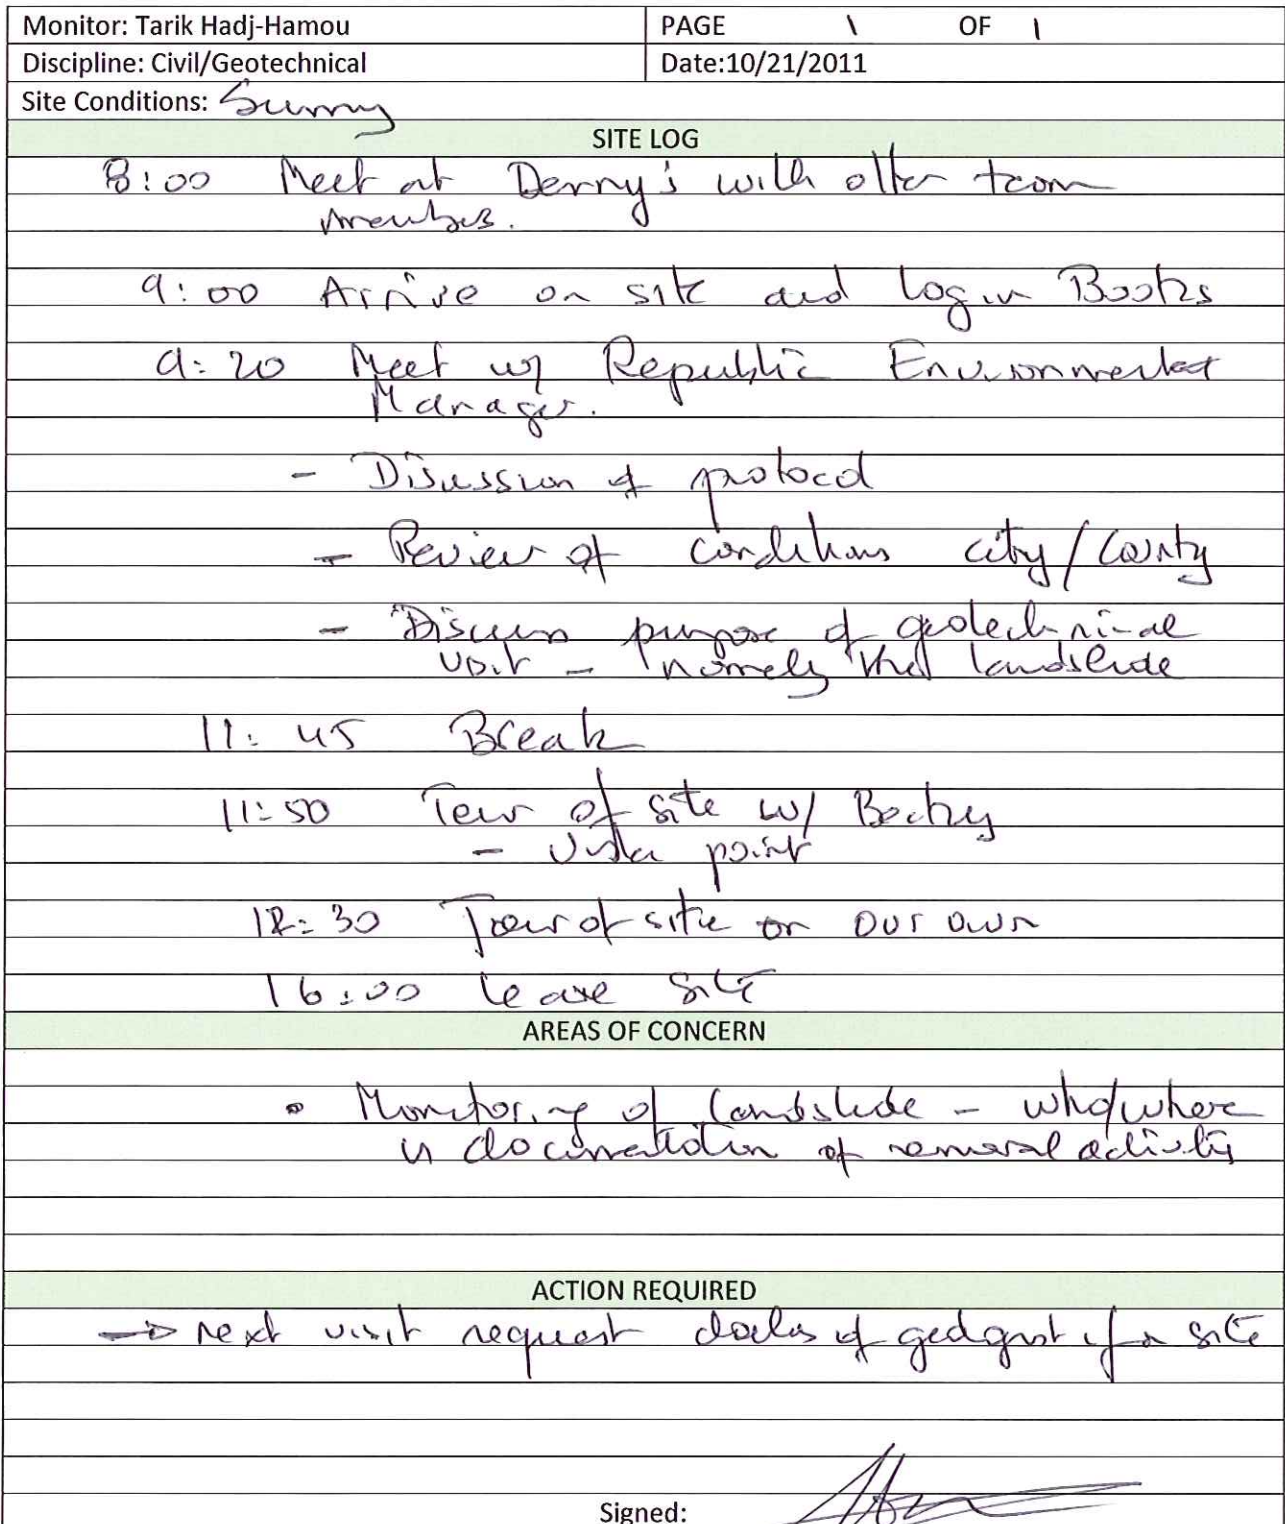 Monitor: Tarik Hadj-Hamou PAGE 1 OF 1
Discipline: Civil/Geotechnical Date:10/21/2011
Site Conditions: Sunny
SITE LOG
8:00 Meet at Denny's with other team
members.
9:00 Arrive on site and log in Books
9:20 Meet w/ Republic Environmental
Manager.
- Discussion of protocol
- Review of conditions city/County
- Discuss purpose of geotechnical
visit - namely the landslide
11:45 Break
11:50 Tour of site w/ Becky
- Vista point
12:30 Tour of site on our own
16:00 leave site
AREAS OF CONCERN
• Monitoring of landslide - who/where
is documentation of removal activity
ACTION REQUIRED
→ next visit request of if on site
Signed: